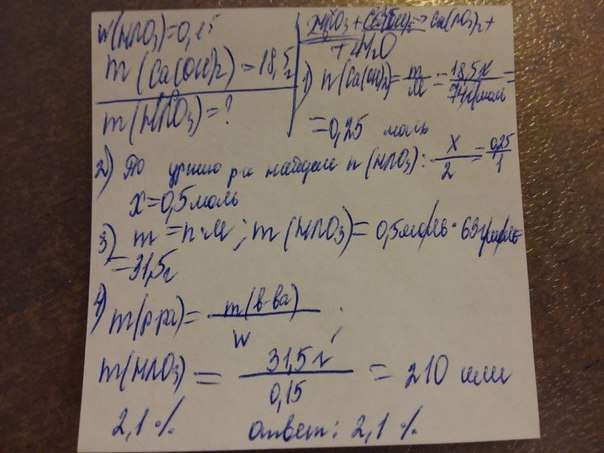 w(HNO3)=0,15
m(Ca(OH)2)=18,5г
m(HNO3)=?
2HNO3+Ca(OH)2→Ca(NO3)2+
+2H2O
1) n(Ca(OH)2)=m/M=18,5г/74г/моль=
=0,25 моль
2) По ур-ию р-и найдем n(HNO3): x/2=0,25/1
x=0,5моль
3) m=n·M; m(HNO3)=0,5моль·63г/моль
=31,5г
4) m(р-ра)=m(в-ва)/w;
m(HNO3)=31,5г/0,15=210 или
2,1% ответ: 2,1%